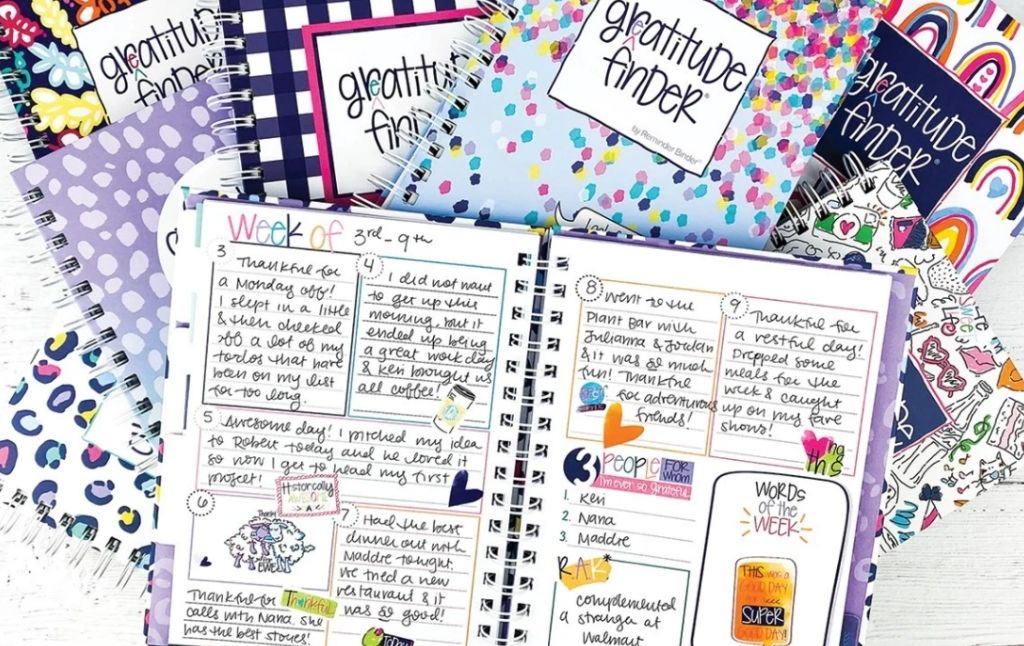 greatitude
greatitude
finder
greatitude
finder®
by Reminder Binder®
greatitude
finder®
Week of 3rd-9th
3 Thankful for
a Monday off!
I slept in a little
& then checked
off a lot of my
todos that have
been on my list
for too long.
4
I did not want
to get up this
morning, but it
ended up being
a great work day
& Ken brought us
all coffee!
5 Awesome day! I pitched my idea
to Robert today and he loved it
so now I get to head my first
project!
Historically
6
EWE
Thankful for Thankful
calls with Nana. She
has the best stories!
Had the best
dinner out with
Maddre tonight.
We tried a new
restaurant & it
was so good!
Today
8 Went to the
Plant Bar with
Julianna & Jordan
& it was so much
fun! Thankful
for adventurous
friends!
9 Thankful for
a restful day!
Prepped some
meals for the
week & caught
up on my fave
shows!
3 PEOPLE FOR WHOM
I'm ever so grateful
1. Ken
2. Nana
3. Maddre
R.A.K
complemented
a stranger at
Walmart
WORDS
of the
WEEK
THIS WAS A
GOOD DAY
SUPER
GOOD DAY!